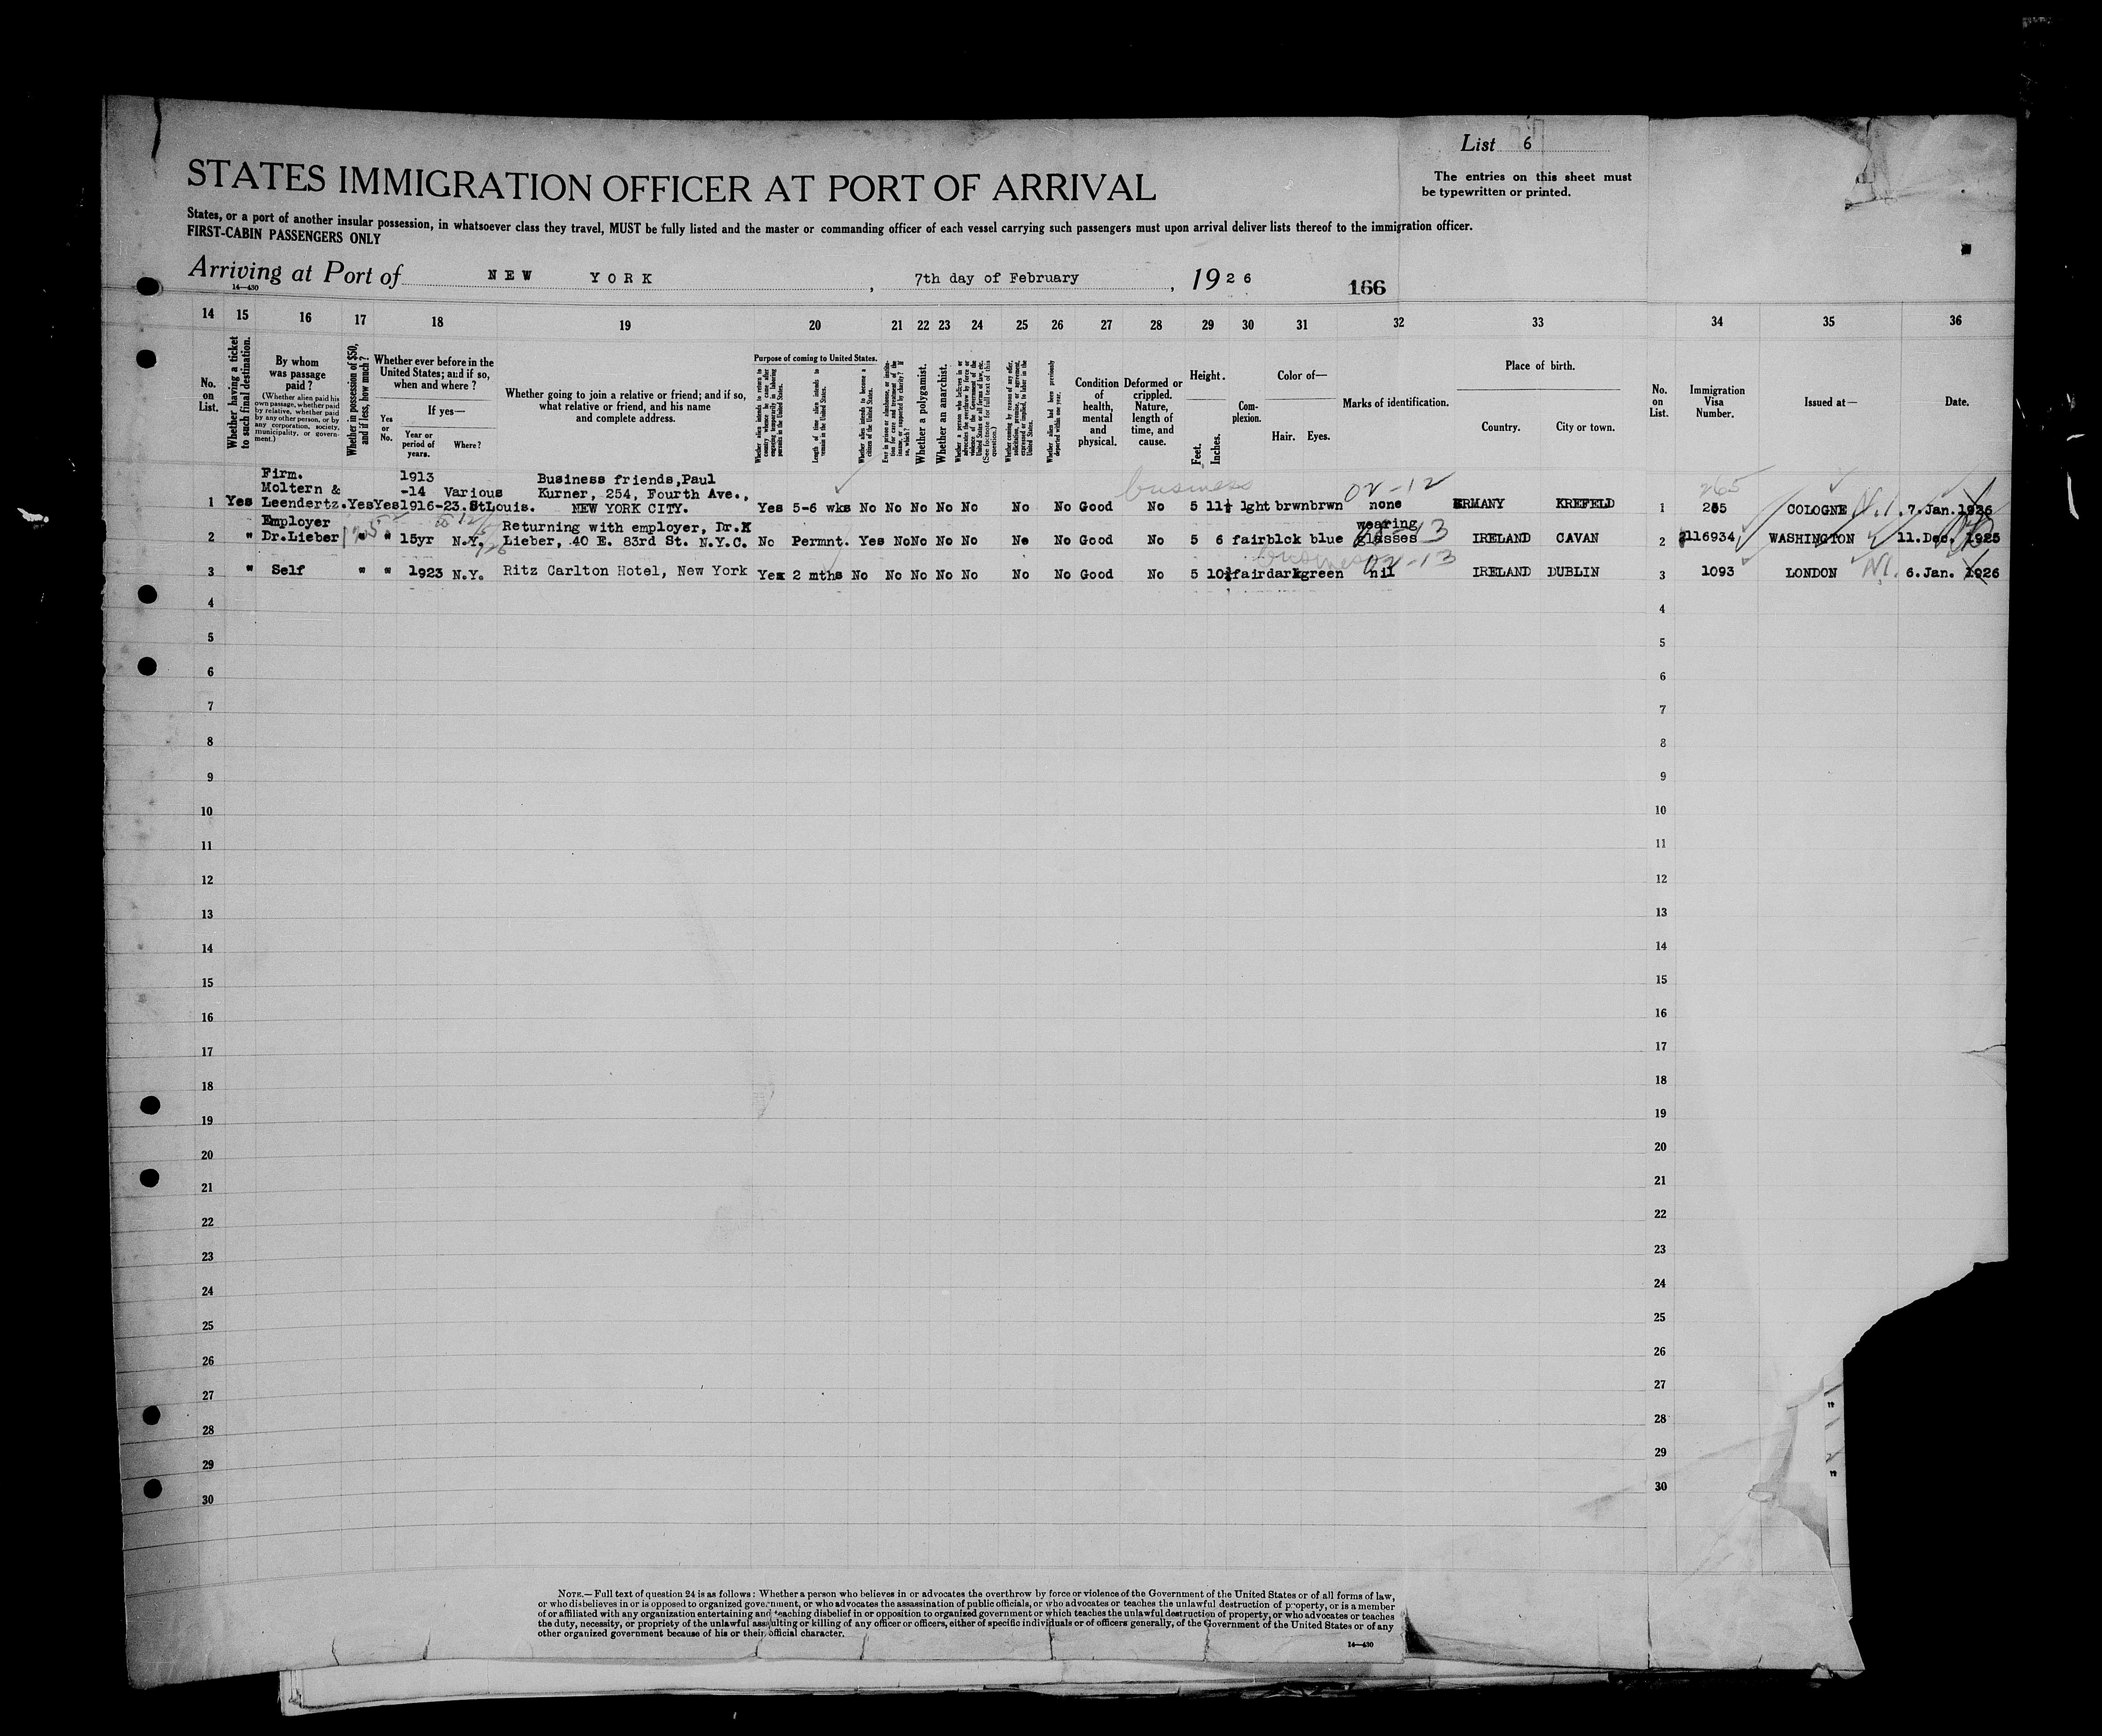 List 6
The entries on this sheet must
be typewritten or printed.
STATES IMMIGRATION OFFICER AT PORT OF ARRIVAL
States, or a port of another insular possession, in whatsoever class they travel, MUST be fully listed and the master or commanding officer of each vessel carrying such passengers must upon arrival deliver lists thereof to the immigration officer.
FIRST-CABIN PASSENGERS ONLY
Arriving at Port of NEW YORK, 7th day of February, 1926 166
14—430
14 15 16 17 18 19 20 21 22 23 24 25 26 27 28 29 30 31 32 33 34 35 36
No. on List.
Whether having a ticket to such final destination.
By whom was passage paid?
(Whether alien paid his own passage, whether paid by relative, whether paid by any other person, or by any corporation, society, municipality, or government.)
Whether in possession of $50, and if less, how much?
Whether ever before in the United States; and if so, when and where?
Yes or No.
If yes—
Year or period of years.
Where?
Whether going to join a relative or friend; and if so, what relative or friend, and his name and complete address.
Purpose of coming to United States.
Whether alien intends to return to country whence he came after engaging temporarily in laboring pursuits in the United States.
Length of time alien intends to remain in the United States.
Whether alien intends to become a citizen of the United States.
Ever in prison or almshouse, or institution for care and treatment of the insane, or supported by charity? If so, which?
Whether a polygamist.
Whether an anarchist.
Whether a person who believes in or advocates the overthrow by force or violence of the Government of the United States or all forms of law, etc. (See footnote for full text of this question.)
Whether coming by reason of any offer, solicitation, promise, or agreement, expressed or implied, to labor in the United States.
Whether alien had been previously deported within one year.
Condition of health, mental and physical.
Deformed or crippled. Nature, length of time, and cause.
Height.
Feet.
Inches.
Complexion.
Color of—
Hair.
Eyes.
Marks of identification.
Place of birth.
Country.
City or town.
No. on List.
Immigration Visa Number.
Issued at—
Date.
Firm. 1913 Business friends,Paul
Moltern & -14 Various Kurner, 254, Fourth Ave., business 02-12 265
1 Yes Leendertz. Yes Yes 1916-23. StLouis. NEW YORK CITY. Yes 5-6 wks No No No No No No No Good No 5 11½ lght brwn brwn none ERMANY KREFELD 1 265 COLOGNE N.I. 7.Jan.1926
Employer Returning with employer, Dr.K wearing
2 " Dr.Lieber " " 15yr N.Y. Lieber, 40 E. 83rd St. N.Y.C. No Permnt. Yes No No No No No No Good No 5 6 fair blck blue glasses IRELAND CAVAN 2 2116934 WASHINGTON 11.Dec. 1925
business 02-13
3 " Self " " 1923 N.Y. Ritz Carlton Hotel, New York Yes 2 mths No No No No No No No Good No 5 10½ fair dark green nil IRELAND DUBLIN 3 1093 LONDON N.I. 6.Jan. 1926
4 4
5 5
6 6
7 7
8 8
9 9
10 10
11 11
12 12
13 13
14 14
15 15
16 16
17 17
18 18
19 19
20 20
21 21
22 22
23 23
24 24
25 25
26 26
27 27
28 28
29 29
30 30
NOTE.—Full text of question 24 is as follows: Whether a person who believes in or advocates the overthrow by force or violence of the Government of the United States or of all forms of law,
or who disbelieves in or is opposed to organized government, or who advocates the assassination of public officials, or who advocates or teaches the unlawful destruction of property, or is a member
of or affiliated with any organization entertaining and teaching disbelief in or opposition to organized government or which teaches the unlawful destruction of property, or who advocates or teaches
the duty, necessity, or propriety of the unlawful assaulting or killing of any officer or officers, either of specific individuals or of officers generally, of the Government of the United States or of any
other organized government because of his or their official character.
14—430